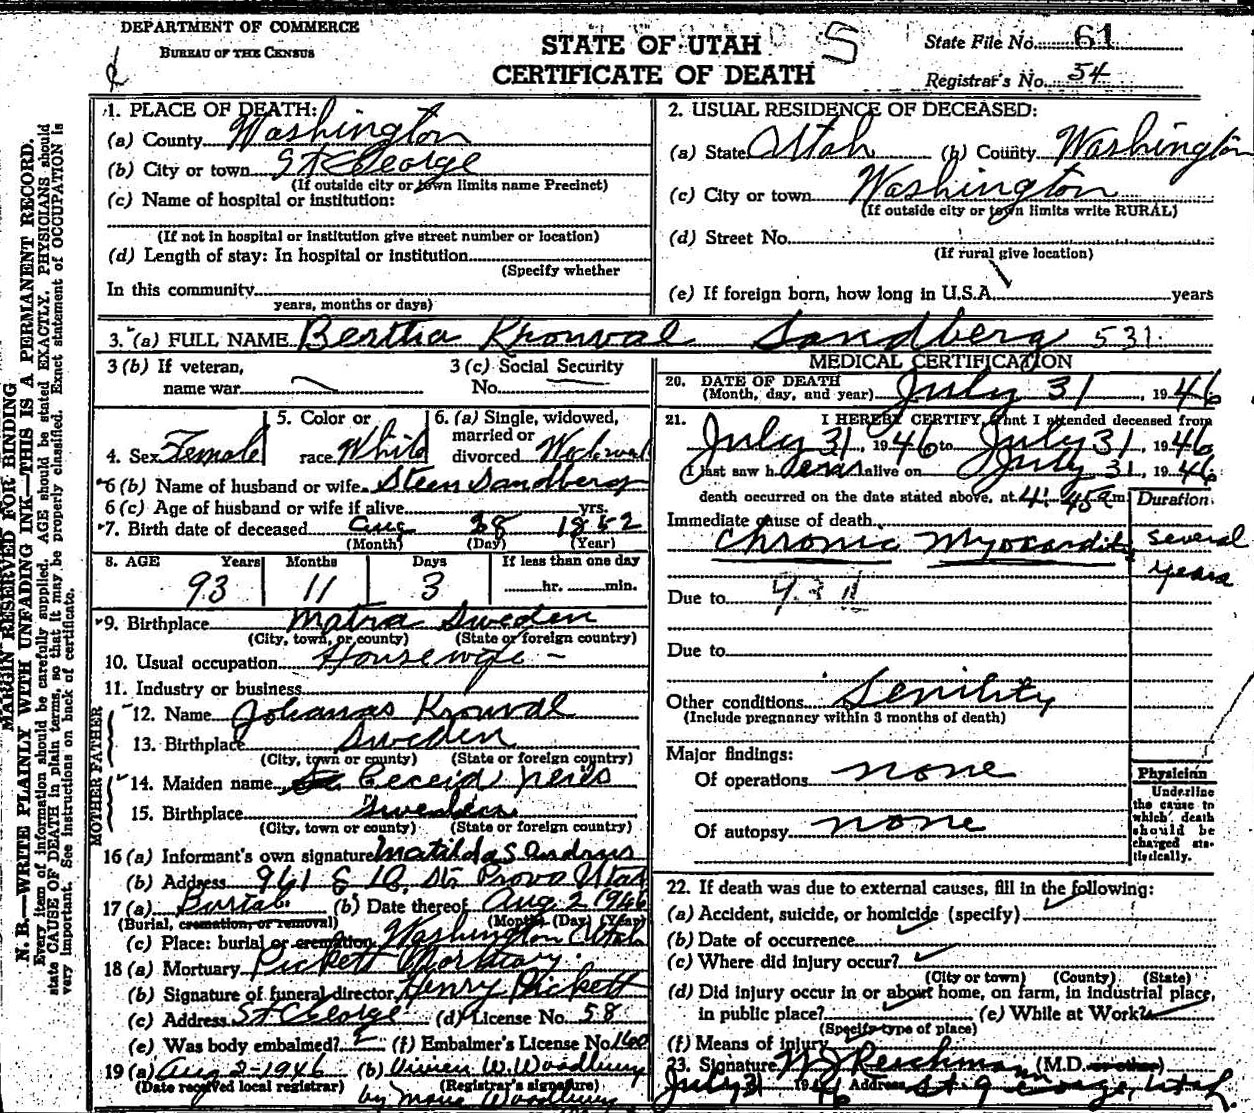 DEPARTMENT OF COMMERCE
BUREAU OF THE CENSUS
STATE OF UTAH
CERTIFICATE OF DEATH
State File No. 61
Registrar's No. 54
MARGIN RESERVED FOR BINDING
N. B.—WRITE PLAINLY WITH UNFADING INK—THIS IS A PERMANENT RECORD.
Every item of information should be carefully supplied. AGE should be stated EXACTLY. PHYSICIANS should
state CAUSE OF DEATH in plain terms, so that it may be properly classified. Exact statement of OCCUPATION is
very important. See instructions on back of certificate.
1. PLACE OF DEATH:
(a) County Washington
(b) City or town St George
(If outside city or town limits name Precinct)
(c) Name of hospital or institution:
(If not in hospital or institution give street number or location)
(d) Length of stay: In hospital or institution
(Specify whether
In this community
years, months or days)
2. USUAL RESIDENCE OF DECEASED:
(a) State Utah (b) County Washington
(c) City or town Washington
(If outside city or town limits write RURAL)
(d) Street No.
(If rural give location)
(e) If foreign born, how long in U.S.A. years
3. (a) FULL NAME Bertha Kronval Sandberg 531
3 (b) If veteran,
name war
3 (c) Social Security
No.
4. Sex Female
5. Color or
race White
6. (a) Single, widowed,
married or
divorced Widowed
6 (b) Name of husband or wife Steen Sandberg
6 (c) Age of husband or wife if alive yrs.
7. Birth date of deceased Aug 28 1852
(Month) (Day) (Year)
8. AGE Years Months Days If less than one day
93 11 3 hr. min.
9. Birthplace Sweden
(City, town, or county) (State or foreign country)
10. Usual occupation Housewife -
11. Industry or business
FATHER
12. Name Johanas Kronval
13. Birthplace Sweden
(City, town or county) (State or foreign country)
MOTHER
14. Maiden name
15. Birthplace Sweden
(City, town or county) (State or foreign country)
16 (a) Informant's own signature Matilda S Andrus
(b) Address 961 Provo Utah
17 (a) Burial (b) Date thereof Aug 2 1946
(Burial, cremation, or removal) (Month) (Day) (Year)
(c) Place: burial or cremation Washington Utah
18 (a) Mortuary Pickett Mortuary.
(b) Signature of funeral director Henry Pickett
(c) Address St George (d) License No. 58
(e) Was body embalmed? (f) Embalmer's License No. 160
19 (a) Aug 2-1946 (b) Vivien W. Woodbury
(Date received local registrar) (Registrar's signature)
by Woodbury
MEDICAL CERTIFICATION
20. DATE OF DEATH
(Month, day, and year) July 31, 1946
21. I HEREBY CERTIFY, that I attended deceased from
July 31, 1946 to July 31, 1946
I last saw h alive on July 31, 1946.
death occurred on the date stated above, at 4:45 a m
Duration
Immediate cause of death
Chronic Myocarditis several
years
Due to
Due to
Other conditions Senility
(Include pregnancy within 3 months of death)
Major findings:
Of operations none
Of autopsy none
Physician
Underline
the cause to
which death
should be
charged sta-
tistically.
22. If death was due to external causes, fill in the following:
(a) Accident, suicide, or homicide (specify)
(b) Date of occurrence
(c) Where did injury occur?
(City or town) (County) (State)
(d) Did injury occur in or about home, on farm, in industrial place,
in public place? (e) While at Work?
(Specify type of place)
(f) Means of injury
23. Signature W J Reichmann (M.D. or other)
July 31 1946 Address St George, Utah.